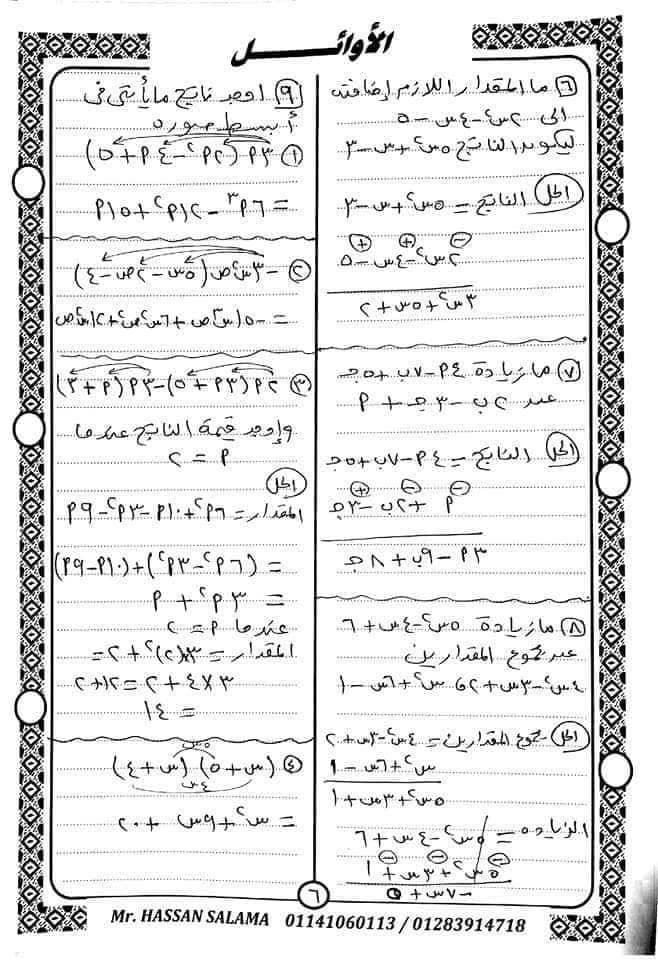 الأوائل
٦ ما المقدار اللازم إضافته
الى ٢س٢ - ٤س - ٥
ليكون الناتج ٥س٢ + س - ٣
الحل الناتج = ٥س٢ + س - ٣
- + +
٢س٢ - ٤س - ٥
٣س٢ + ٥س + ٢
٧ ما زيادة ٤م - ٧ب + ٥جـ
عن ٢ب - ٣جـ + م
الحل الناتج = ٤م - ٧ب + ٥جـ
- - +
م + ٢ب - ٣جـ
٣م - ٩ب + ٨جـ
٨ ما زيادة ٥س٢ - ٤س + ٦
عن مجموع المقدارين
٤س٢ - ٣س + ٢ و س٢ + ٦س - ١
الحل مجموع المقدارين = ٤س٢ - ٣س + ٢
س٢ + ٦س - ١
٥س٢ + ٣س + ١
الزيادة = ٥س٢ - ٤س + ٦
- - -
٥س٢ + ٣س + ١
- ٧س + ٥
٩ اوجد ناتج ما يأتى فى
أبسط صوره
١ ٣م (٢م٢ - ٤م + ٥)
= ٦م٣ - ١٢م٢ + ١٥م
٢ - ٣س٢ص (٥س - ٢ص - ٤)
= - ١٥س٣ص + ٦س٢ص٢ + ١٢س٢ص
٣ ٢م (٣م + ٥) - ٣م (م + ٣)
وإوجد قيمة الناتج عندما
م = ٢
الحل
المقدار = ٦م٢ + ١٠م - ٣م٢ - ٩م
= (٦م٢ - ٣م٢) + (١٠م - ٩م)
= ٣م٢ + م
عندما م = ٢
المقدار = ٣×(٢)٢ + ٢ =
٣ × ٤ + ٢ = ١٢ + ٢
= ١٤
٥س
٤ (س + ٥) (س + ٤)
٤س
= س٢ + ٩س + ٢٠
٦
Mr. HASSAN SALAMA 01141060113 / 01283914718